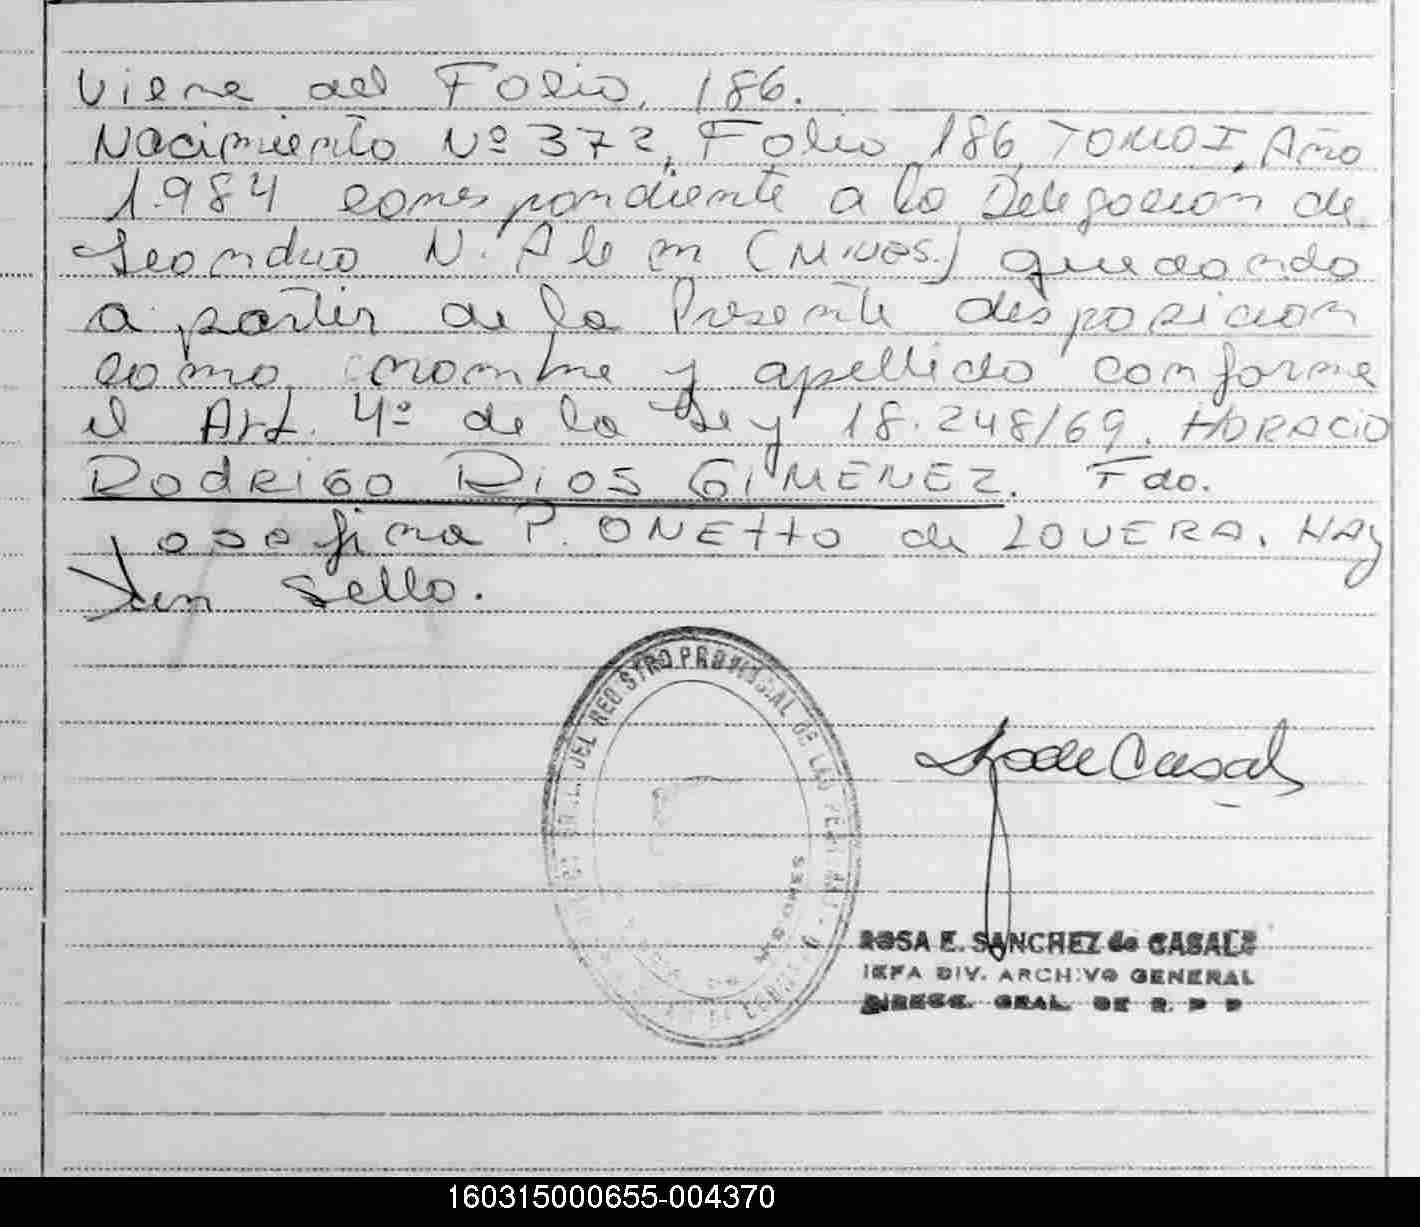 Viene del Folio, 186.
Nacimiento Nº 372, Folio 186, TOMO I, Año
1.984 correspondiente a la Delegación de
Leandro N. Alem (M.NES.) quedando
a partir de la Presente desposicion
como nombre y apellido conforme
el Art. 4º de la Ley 18.248/69. HORACIO
RodRIGO RIOS GIMENEZ. Fdo.
Josefina P. ONETTO de LOVERA. HAy
un Sello.
DEL REGISTRO PROVINCIAL DE LAS PERSONAS
MISIONES
S. de Casals
ROSA E. SANCHEZ de CASALS
JEFA DIV. ARCHIVO GENERAL
DIRECC. GRAL. DE R. P P
160315000655-004370